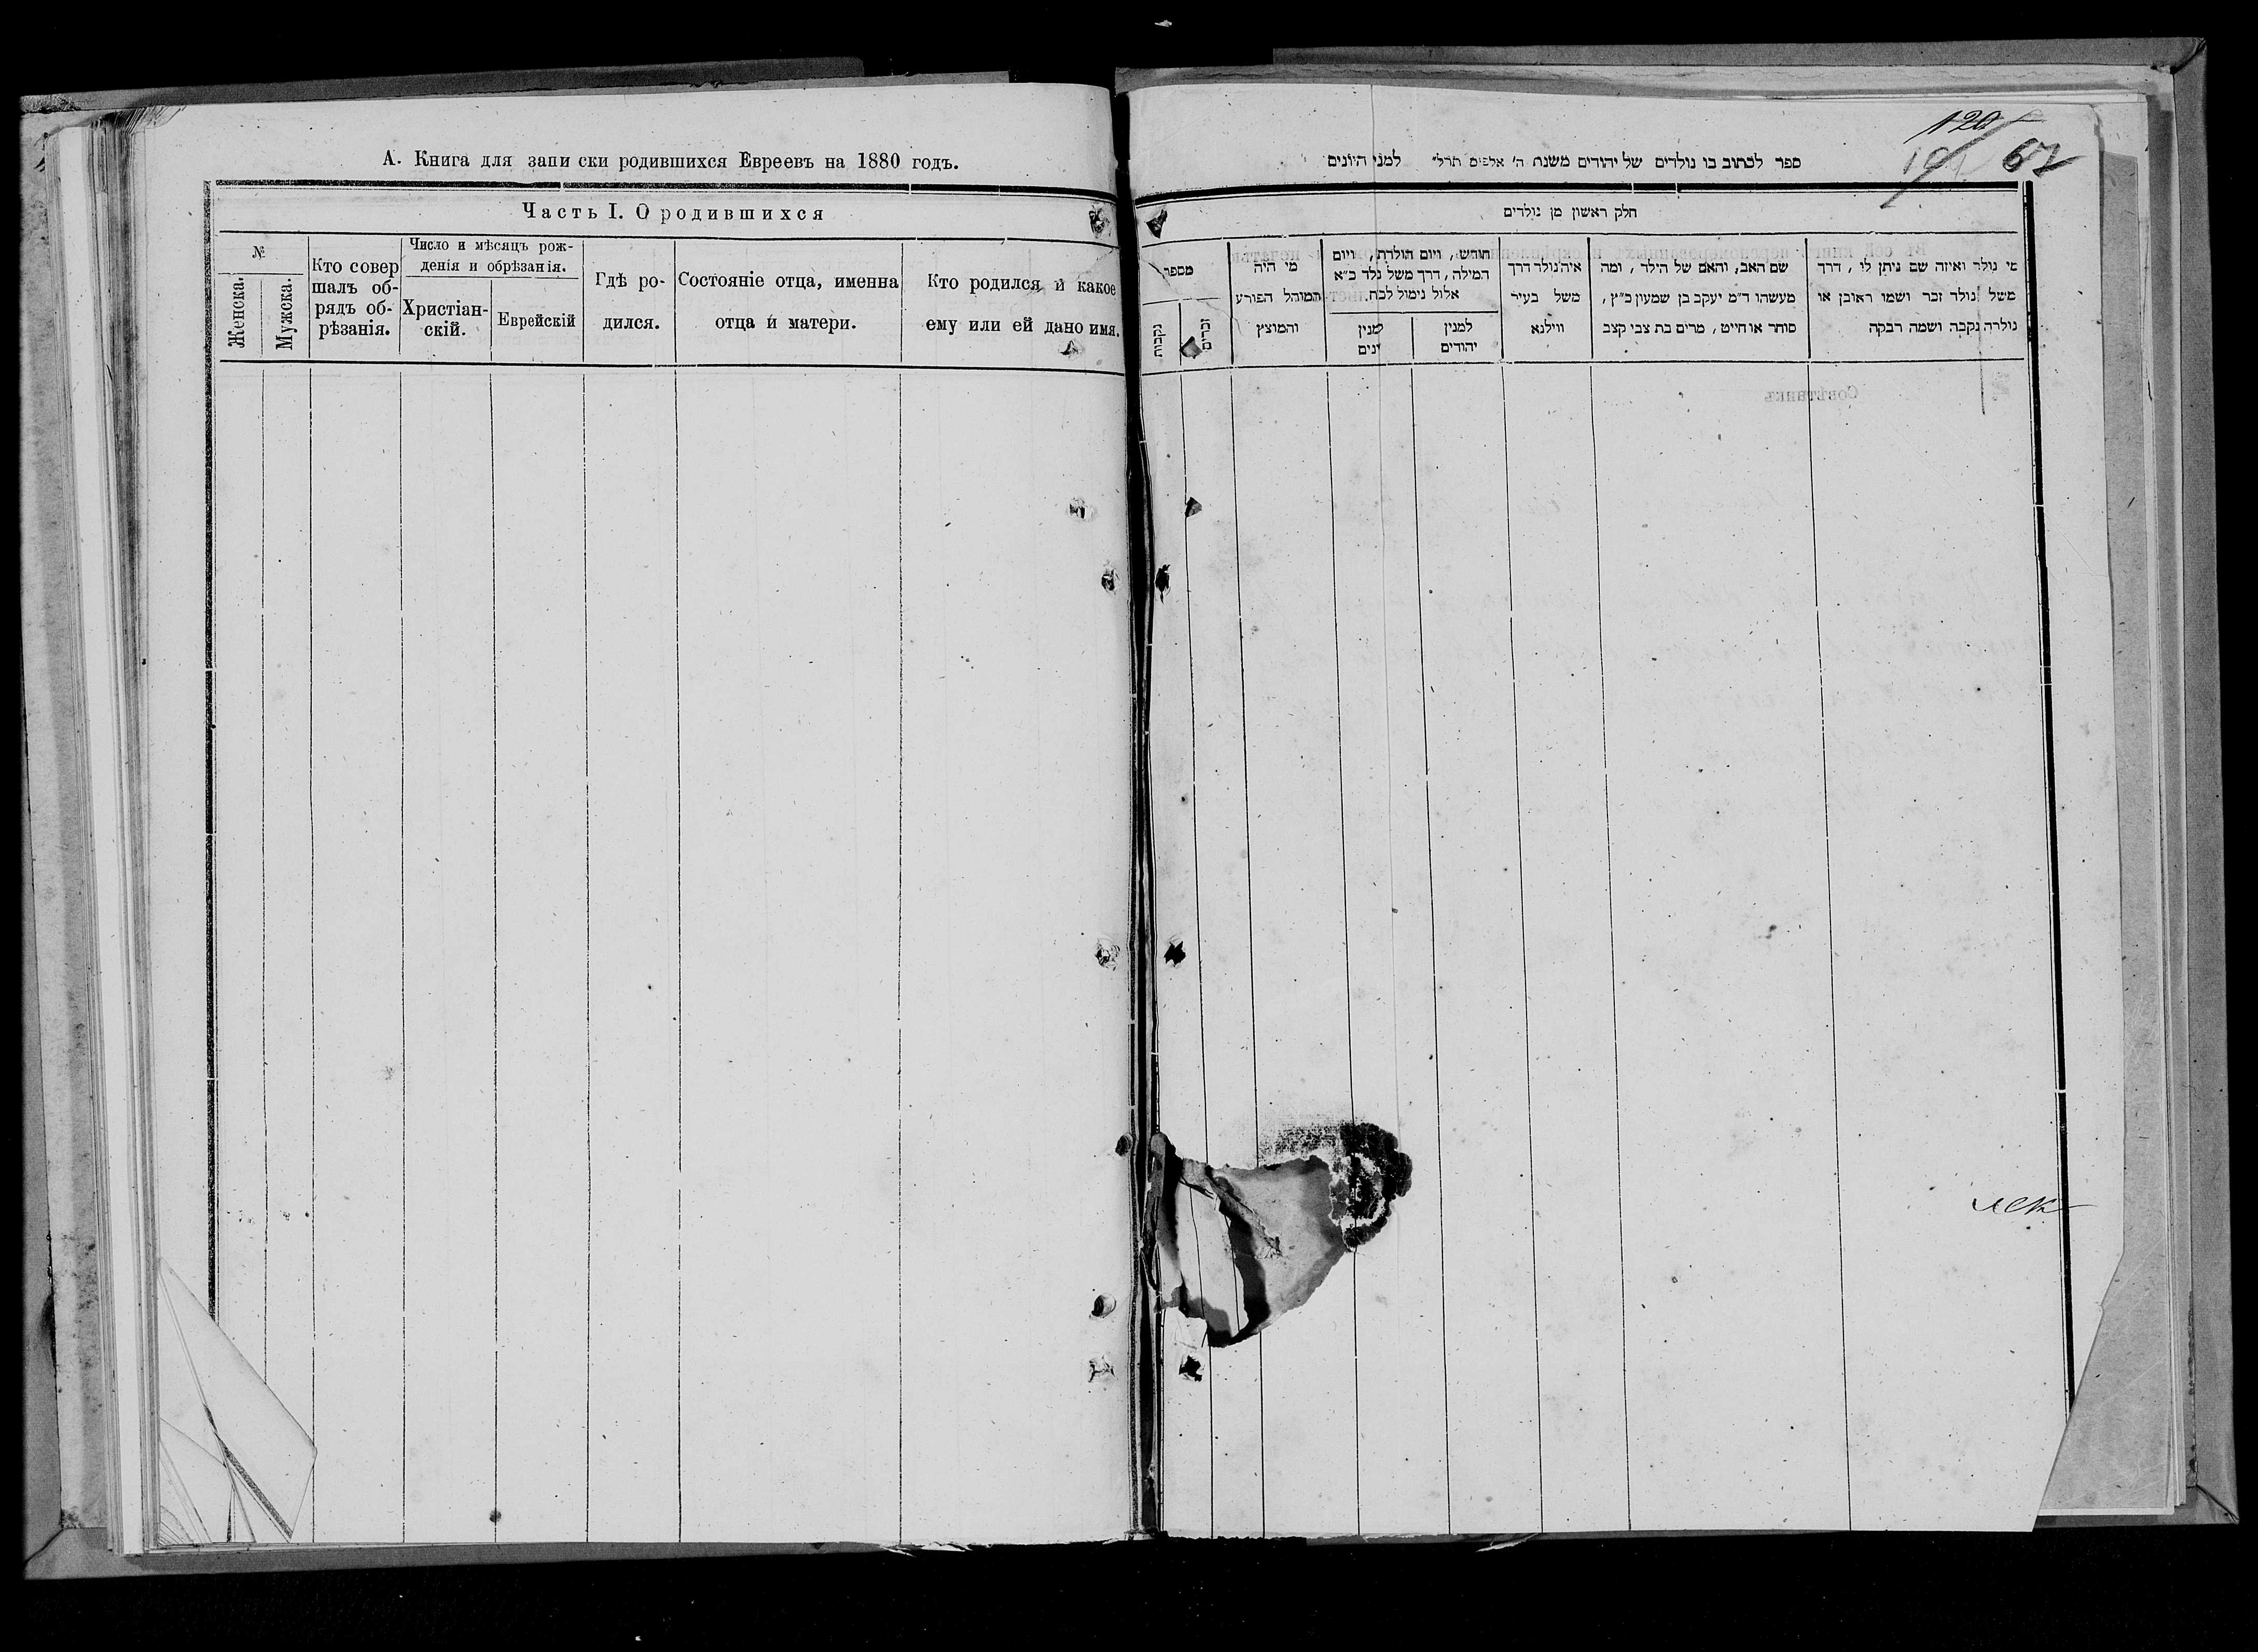 А. Книга для запи ски родившихся Евреевъ на 1880 годъ.
Часть I. О родившихся
№
Женска.
Мужска.
Кто совер
шалъ об-
рядъ об-
рѣзанія.
Число и мѣсяцъ рож-
денія и обрѣзанія.
Христіан-
скій.
Еврейскій
Гдѣ ро-
дился.
Состояніе отца, именна
отца и матери.
Кто родился и какое
ему или ей дано имя.
120
67
ספר לכתוב בו נולדים של יהודים משנת ה' אלפים תר"ל למני היונים
חלק ראשון מן נולדים
מי נולד ואיזה שם ניתן לו, דרך
משל נולד זכר ושמו ראובן או
נולדה נקבה ושמה רבקה
שם האב, והאם של הילד, ומה
מעשהו ד"מ יעקב בן שמעון כ"ץ,
סוחר או חייט, מרים בת צבי קצב
איה נולד דרך
משל בעיר
ווילנא
חודש, ויום הולדת, ויום
המילה, דרך משל נלד כ"א
אלול נימול לכח.
למנין
יהודים
למנין
ינים
מי היה
המוהל הפורע
והמוצץ
מספר
זכרים
נקבות
Совѣтникъ